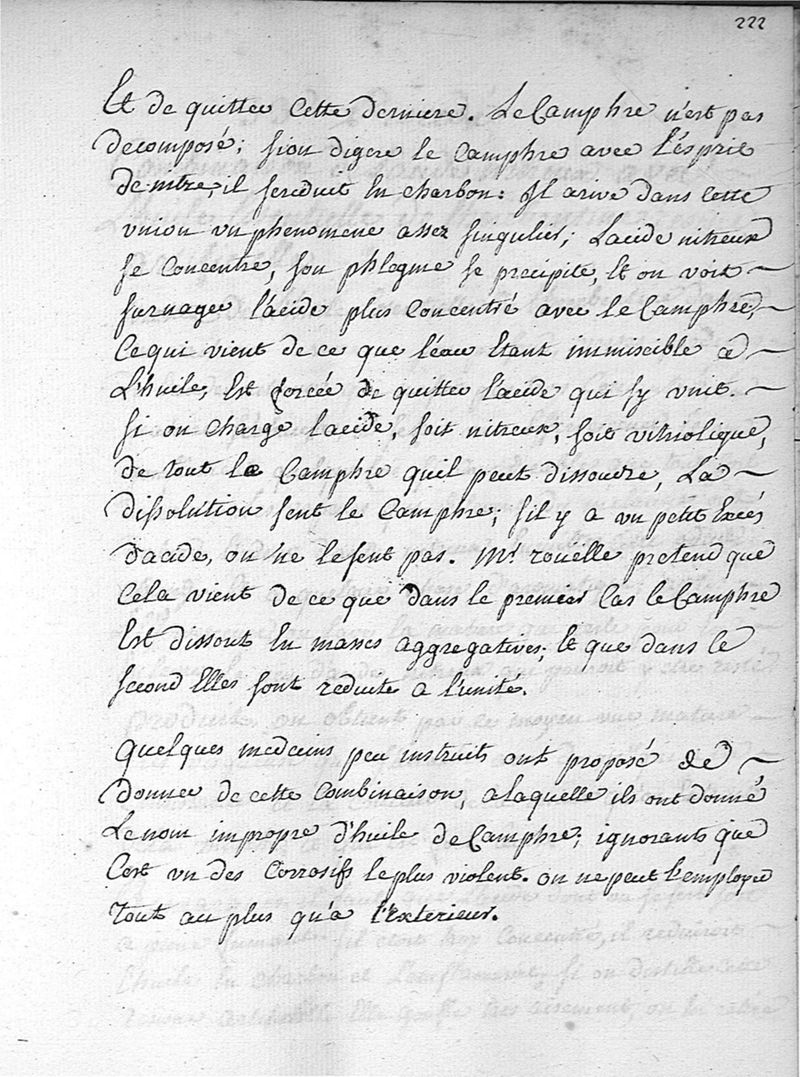 222
Et de quitter Cette derniere. Le Camphre n'est pas
decomposé; si on digere le Camphre avec l'ésprit
de nitre, il se reduit En charbon: Il arive dans cette
vnion vn phenomene assez singulier; L'acide nitreux
se Concentre, son phlegme se precipite, Et on voit
surnager l'ácide plus Concentré avec le Camphre,
Ce qui vient de ce que l'éau Etant immiscible a
L'huile, Est forcée de quitter l'acide qui s'y vnit.
Si on charge l'acide, soit nitreux, soit vitriolique,
de tout le Camphre qu'il peut dissoudre, La
dissolution sent le Camphre; s'il y a vn petit Excés
d'acide, on ne le sent pas. Mr. rouelle pretend que
Cela vient de ce que dans le premier Cas le Camphre
Est dissout En masses aggregatives; Et que dans le
second Elles sont reduite a l'únité.
Quelques medecins peu instruits ont proposé de
donner de cette Combinaison, a laquelle ils ont donné
Le nom impropre d'huile de Camphre; ignorants que
C'est vn des Corrosifs le plus violent. on ne peut l'employer
Tout au plus qu'a l'Exterieur.